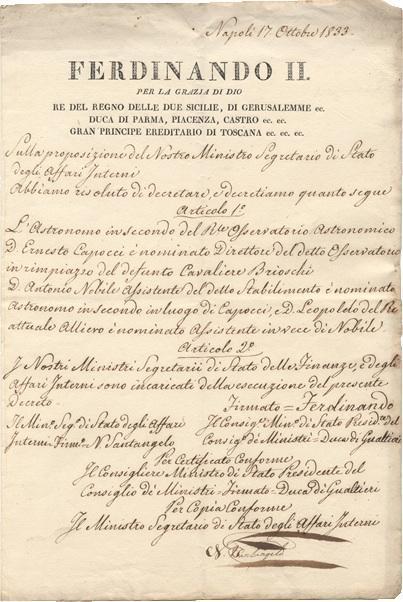 Napoli 17 Ottobre 1833.
FERDINANDO II.
PER LA GRAZIA DI DIO
RE DEL REGNO DELLE DUE SICILIE, DI GERUSALEMME ec.
DUCA DI PARMA, PIACENZA, CASTRO ec. ec.
GRAN PRINCIPE EREDITARIO DI TOSCANA ec. ec. ec.
Sulla proposizione del Nostro Ministro Segretario di Stato
degli Affari Interni
Abbiamo risoluto di decretare, e decretiamo quanto segue
Articolo 1º
L'Astronomo in secondo del Rle Osservatorio Astronomico
D. Ernesto Capocci è nominato Direttore del detto Osservatorio
in rimpiazzo del defunto Cavaliere Brioschi
D. Antonio Nobile Assistente del detto Stabilimento è nominato
Astronomo in secondo in luogo di Capocci, e D. Leopoldo del Re
attuale Allievo è nominato Assistente in vece di Nobile.
Articolo 2º
I Nostri Ministri Segretarii di Stato delle Finanze, e degli
Affari Interni sono incaricati della esecuzione del presente
Decreto.
Firmato = Ferdinando
Il Mino Sego di Stato degli Affari
Interni Firmo = N Santangelo
Il Consigre Mino di Stato Preside del
Consigo de' Ministri = Duca di Gualtieri
Per Certificato Conforme
Il Consigliere Ministro di Stato Presidente del
Consiglio de' Ministri = Firmato = Duca di Gualtieri
Per Copia Conforme
Il Ministro Segretario di Stato degli Affari Interni
N. Santangelo